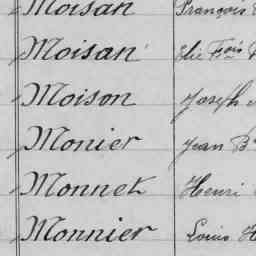 Moisan François
Moisan Elie Frois
Moison Joseph
Monier Jean B
Monnet Henri
Monnier Louis H